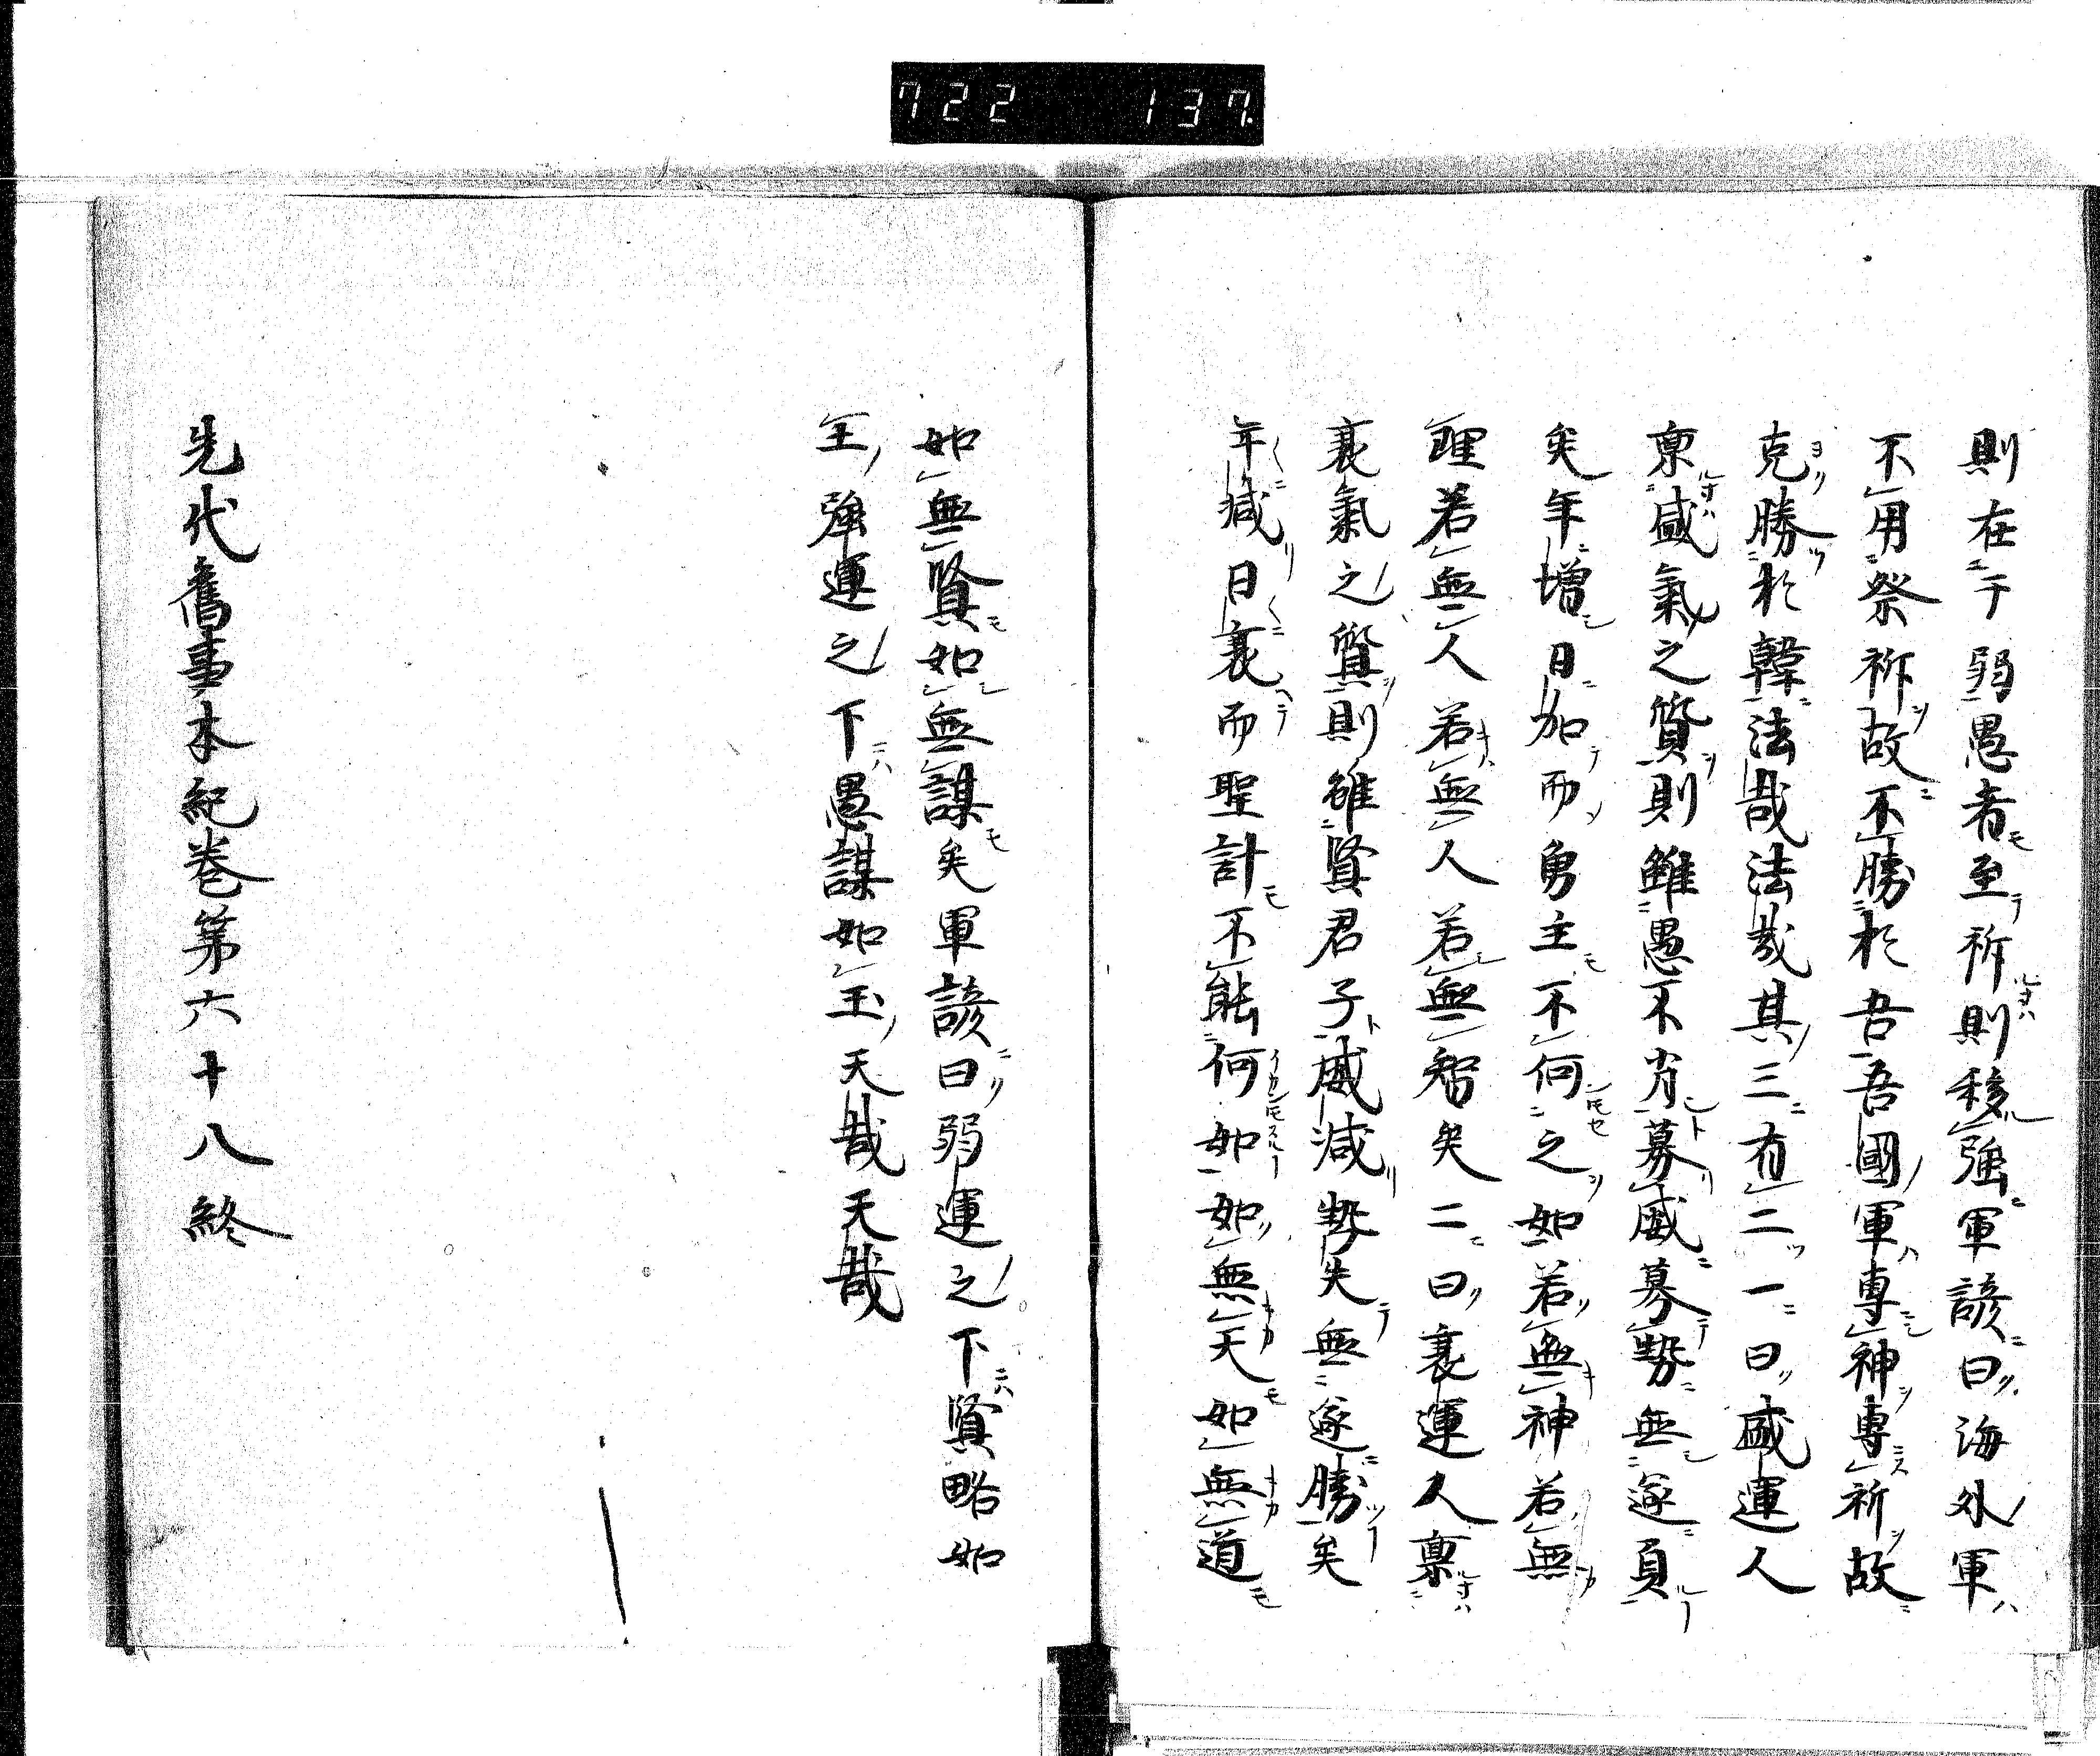 722 137.
則在于弱愚者至祈則移強軍諺曰海外軍
不用祭祈故不勝於吾吾國軍専神専祈故
克勝於韓法哉法哉其三有二一曰盛運人
稟盛氣之質則雖愚不肖募威募勢無遂負
矣年増日加而勇主不何之如若無神若無
理若無人若無人若無智矣二曰衰運人稟
衰氣之質則雖賢君子威減勢失無遂勝矣
年減日衰而聖計不能何如如無天如無道
如無賢如無謀矣軍諺曰弱運之下賢略如
土強運之下愚謀如玉天哉天哉
先代舊事本紀巻第六十八終